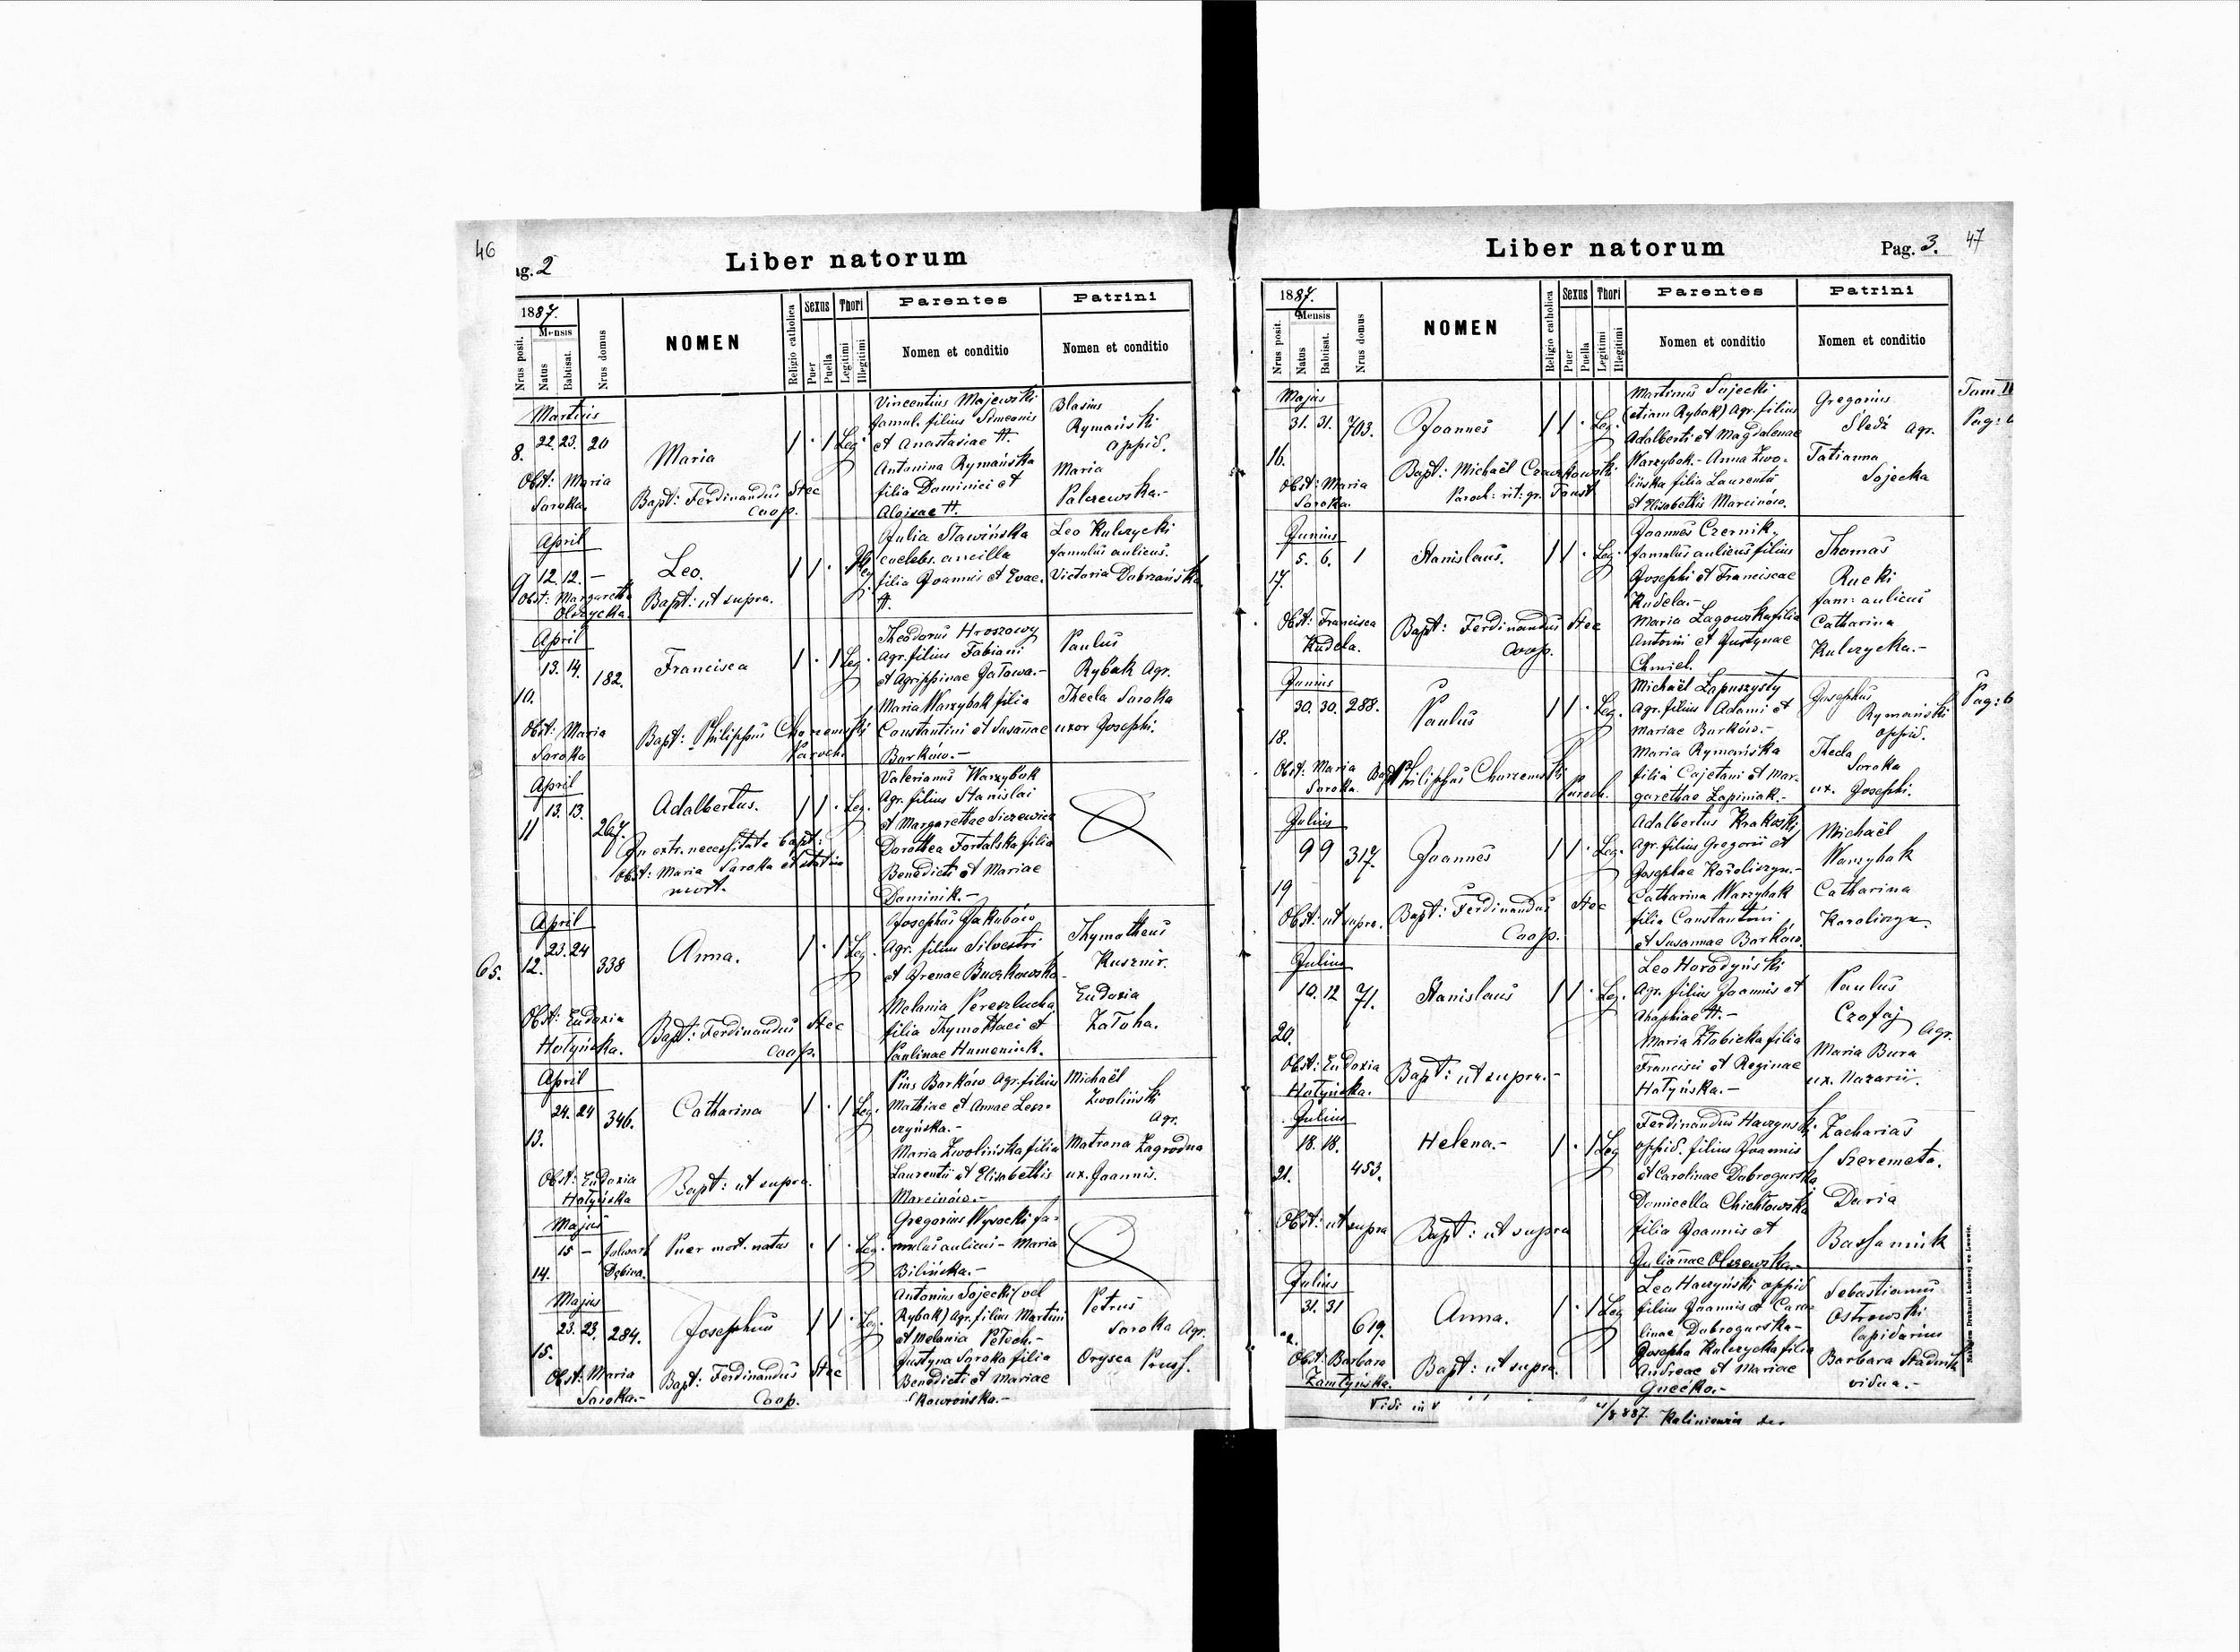 46
ag. 2
Liber natorum
1887.
Mensis
Nrus posit.
Natus
Babtisat.
Nrus domus
NOMEN
Religio catholica
Sexus
Puer
Puella
Thori
Legitimi
Illegitimi
Parentes
Nomen et conditio
Patrini
Nomen et conditio
Martius
8. 22. 23. 20
Maria
1 · 1 Leg.
Obst: Maria
Soroka.
Bapt: Ferdinandus Stec
Coop.
Vincentius Majewski
famul. filius Simeonis
et Anastasiae tt.
Antonina Rymańska
filia Dominici et
Aloisae tt.
Blasius
Rymański
oppid.
Maria
Palczewska.-
April
9 12. 12. —
Leo.
1 1 ·
Obst: Margaretta
Olszycka.
Bapt: ut supra.
Julia Stawińska
caelebs. ancilla
filia Joannis et Evae.
tt.
Leo Kulczycki
famulus aulicus.
Victoria Dobrzańska
April
10. 13. 14. 182.
Francisca
1 · 1 Leg.
Obst: Maria
Soroka
Bapt: Philippus Chorzemski
Paroch.
Theodorus Hroszowy
Agr. filius Fabiani
et Agrippinae Jatowa.-
Maria Warzybok filia
Constantini et Susannae
Borków.-
Paulus
Rybak Agr.
Thecla Soroka
uxor Josephi.
April
11 13. 13. 267.
Adalbertus.
1 1 · Leg.
In extr. necessitate bapt:
Obst: Maria Soroka et statim
mort.
Valerianus Warzybok
Agr. filius Stanislai
et Margarethae Siczewicz
Dorothea Fortalska filia
Benedicti et Mariae
Dominik.-
April
65. 12. 23. 24 338
Anna.
1 · 1 Leg.
Obst: Eudoxia
Hołyńska.
Bapt: Ferdinandus Stec
Coop.
Josephus Jakubów
Agr. filius Silvestri
et Irenae Buczkowska-
Melania Pereszlucha
filia Thymothaei et
Paulinae Humeniuk.
Thymotheus
Kusznir.
Eudoxia
Załoha.
April
13. 24. 24 346.
Catharina
1 · 1 Leg.
Obst: Eudoxia
Hołyńska
Bapt: ut supra.
Pius Borków Agr. filius
Mathiae et Annae Lesz-
czyńska.-
Maria Zwolińska filia
Laurentii et Elisabethis
Marcinów.-
Michaël
Zwoliński
Agr.
Matrona Zagrodna
ux. Joannis.
Majus
14. 15 — folwark
Dębina.
Puer mort. natus
· 1 · Leg.
Gregorius Wysocki fa-
mulus aulicus - Maria
Bilińska.-
Majus
15. 23. 23. 284.
Josephus
1 1 · Leg.
Obst: Maria
Soroka.-
Bapt: Ferdinandus Stec
Coop.
Antonius Sojecki (vel
Rybak) Agr. filius Martini
et Melania Potoch.-
Justyna Soroka filia
Benedicti et Mariae
Skowrońska.-
Petrus
Soroka Agr.
Orysca Pruss.
Liber natorum
Pag. 3.
47
1887.
Mensis
Nrus posit.
Natus
Babtisat.
Nrus domus
NOMEN
Religio catholica
Sexus
Puer
Puella
Thori
Legitimi
Illegitimi
Parentes
Nomen et conditio
Patrini
Nomen et conditio
Majus
16. 31. 31. 703.
Joannes
1 1 · Leg.
Obst: Maria
Soroka.
Bapt: Michaël Czaczkowski
Paroch: rit: gr.
Martinus Sojecki
(etiam Rybak) Agr. filius
Adalberti et Magdalenae
Warzybok.- Anna Zwo-
lińska filia Laurentii
et Elisabethis Marcinów.
Gregorius
Śledź Agr.
Tatianna
Sojecka
Junius
17. 5. 6. 1
Stanislaus.
1 1 · Leg.
Obst: Francisca
Kudela.
Bapt: Ferdinandus Stec
Coop.
Joannes Czernik,
famulus aulicus filius
Josephi et Franciscae
Kudela.-
Maria Lagowska filia
Antonii et Justynae
Chmiel.
Thomas
Rucki
fam: aulicus
Catharina
Kulczycka.-
Junius
18. 30. 30. 288.
Paulus
1 1 · Leg.
Obst: Maria
Soroka.
Bapt: Philippus Chorzemski
Paroch.
Michaël Lapuszysty
Agr. filius Adami et
Mariae Borków.-
Maria Rymańska
filia Cajetani et Mar-
garethae Lapiniak.-
Josephus
Rymański
oppid.
Thecla
Soroka
ux. Josephi.
Pag: 6
Julius
19 9 9 317.
Joannes
1 1 · Leg.
Obst: ut supra.
Bapt: Ferdinandus Stec
Coop.
Adalbertus Krakoski
Agr. filius Gregorii et
Josephae Karoliczyn.-
Catharina Warzybok
filia Constantini
et Susannae Borków.
Michaël
Warzybok
Catharina
Karoliczyn
Julius
20. 10. 12 71.
Stanislaus
1 1 · Leg.
Obst: Eudoxia
Hołyńska.
Bapt: ut supra.-
Leo Horodyński
Agr. filius Joannis et
Ahaphiae tt.-
Maria Złobicka filia
Francisci et Reginae
Hołyńska.-
Paulus
Czofaj Agr.
Maria Bura
ux. Nazarii.
Julius
21. 18. 18. 453.
Helena.-
1 · 1 Leg
Obst: ut supra
Bapt: ut supra
Ferdinandus Haczynski
oppid. filius Joannis
et Carolinae Dobrogurska
Domicella Chichłowska
filia Joannis et
Julianae Olszewska.-
Zacharias
Szeremeta.
Daria
Bassaniuk
Julius
31. 31 619.
Anna.
1 · 1 Leg
Obst: Barbara
Zamłyńska.
Bapt: ut supra.
Leo Haczyński oppid
filius Joannis et Caro-
linae Dobrogurska-
Josepha Kulczycka filia
Andreae et Mariae
Gnećko.-
Sebastianus
Ostrowski
lapidarius
Barbara Stadnik
vidua.-
Vidi in